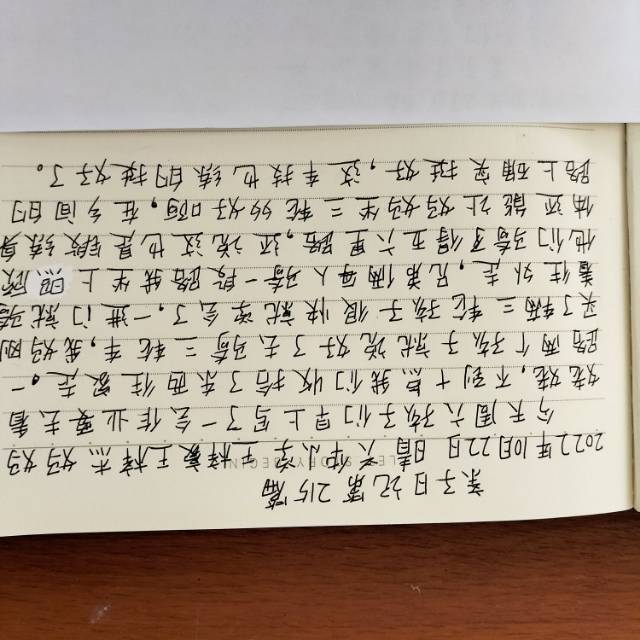 亲子日记第215篇
2022年10月22日 晴 大伾小学 王梓豪王梓杰妈妈
今天周六孩子们早上写了一会作业要去看
姥姥，不到十点我们收拾了东西往家走。一
路两个孩子就说好了去骑三轮车，我妈刚
买了辆三轮孩子很快就学会了。一进门就骑
着往外走，兄弟俩每人骑一段路我坐上照顾
他们骑了得五六里路，还说这也是锻练身
体还能让妈妈坐三轮多好啊，在乡间的
路上确实挺好，这车技也练的挺好了。